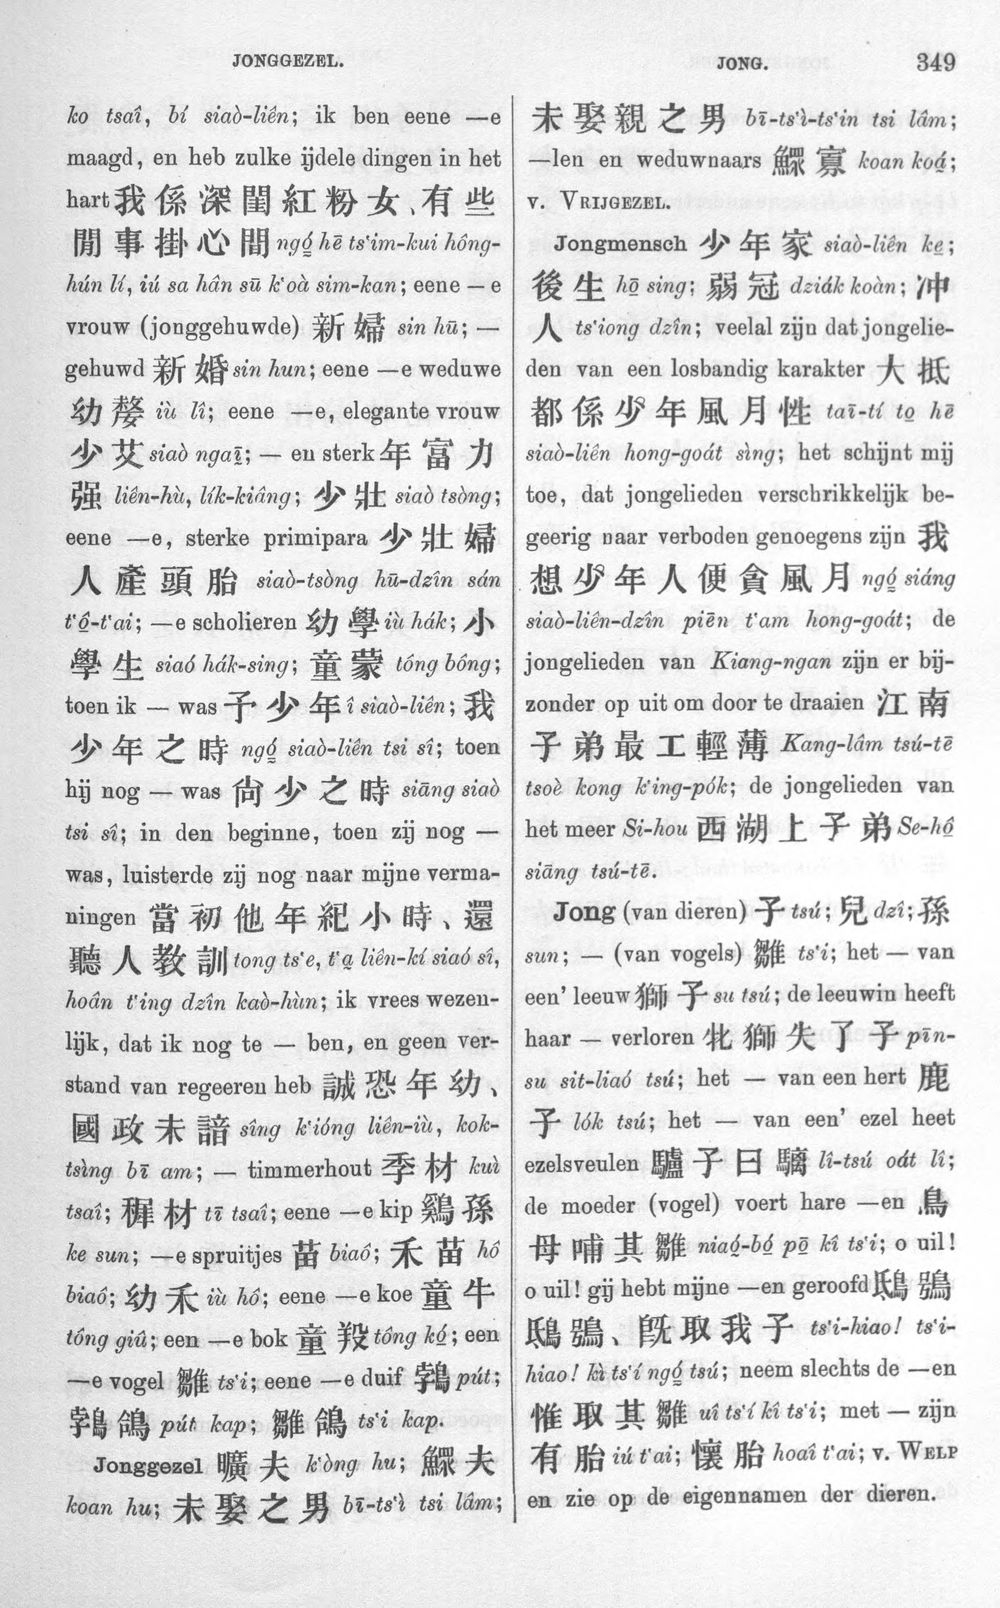 JONGGEZEL.
JONG.
349
ko tsaî, bí siaò-liên; ik ben eene —e
maagd, en heb zulke ijdele dingen in het
hart 我係深閨紅粉女、有些
閒事掛心間 ngó̱ hē ts'im-kui hông-
hún lí, iú sa hân sū k'oà sim-kan; eene — e
vrouw (jonggehuwde) 新婦 sin hū; —
gehuwd 新婚 sin hun; eene —e weduwe
幼嫠 iù lî; eene —e, elegante vrouw
少艾 siaò ngaī̱; — en sterk 年富力
强 liên-hù, lík-kiâng; 少壯 siaò tsòng;
eene —e, sterke primipara 少壯婦
人產頭胎 siaò-tsòng hū-dzîn sán
t'ô̱-t'ai; —e scholieren 幼學 iù hák; 小
學生 siaó hák-sing; 童蒙 tông bông;
toen ik — was 予少年 î siaò-liên; 我
少年之時 ngó̱ siaò-liên tsi sî; toen
hij nog — was 尙少之時 siāng siaò
tsi sî; in den beginne, toen zij nog —
was, luisterde zij nog naar mijne verma-
ningen 當初他年紀小時、還
聽人教訓 tong ts'e, t'a̱ liên-kí siaó sî,
hoân t'ing dzîn kaò-hùn; ik vrees wezen-
lijk, dat ik nog te — ben, en geen ver-
stand van regeeren heb 誠恐年幼、
國政未諳 sîng k'ióng liên-iù, kok-
tsìng bī am; — timmerhout 季材 kuì
tsaî; 穉材 tī tsaî; eene —e kip 鷄孫
ke sun; —e spruitjes 苗 biaô; 禾苗 hô
biaô; 幼禾 iù hô; eene —e koe 童牛
tông giû; een —e bok 童羖 tông kó̱; een
—e vogel 雛 ts'i; eene —e duif 鵓 pút;
鵓鴿 pút kap; 雛鴿 ts'i kap.
Jonggezel 曠夫 k'òng hu; 鰥夫
koan hu; 未娶之男 bī-ts'ì tsi lâm;
未娶親之男 bī-ts'ì-ts'in tsi lâm;
—len en weduwnaars 鰥寡 koan koá̱;
v. VRIJGEZEL.
Jongmensch 少年家 siaò-liên ke̱;
後生 hō̱ sing; 弱冠 dziák koàn; 冲
人 ts'iong dzîn; veelal zijn dat jongelie-
den van een losbandig karakter 大抵
都係少年風月性 taī-tí to̱ hē
siaò-liên hong-goát sìng; het schijnt mij
toe, dat jongelieden verschrikkelijk be-
geerig naar verboden genoegens zijn 我
想少年人便貪風月 ngó̱ siáng
siaò-liên-dzîn piēn t'am hong-goát; de
jongelieden van Kiang-ngan zijn er bij-
zonder op uit om door te draaien 江南
子弟最工輕薄 Kang-lâm tsú-tē
tsoè kong k'ing-pók; de jongelieden van
het meer Si-hou 西湖上子弟 Se-hô̱
siāng tsú-tē.
Jong (van dieren) 子 tsú; 兒 dzî; 孫
sun; — (van vogels) 雛 ts'i; het — van
een' leeuw 獅子 su tsú; de leeuwin heeft
haar — verloren 牝獅失了子 pīn-
su sit-liaó tsú; het — van een hert 鹿
子 lók tsú; het — van een' ezel heet
ezelsveulen 驢子曰驪 lî-tsú oát lî;
de moeder (vogel) voert hare —en 鳥
母哺其雛 niaó̱-bó̱ pō̱ kî ts'i; o uil!
o uil! gij hebt mijne —en geroofd 鴟鴞
鴟鴞、旣取我子 ts'i-hiao! ts'i-
hiao! kì ts'í ngó̱ tsú; neem slechts de —en
惟取其雛 uî ts'í kî ts'i; met — zijn
有胎 iú t'ai; 懷胎 hoaî t'ai; v. WELP
en zie op de eigennamen der dieren.